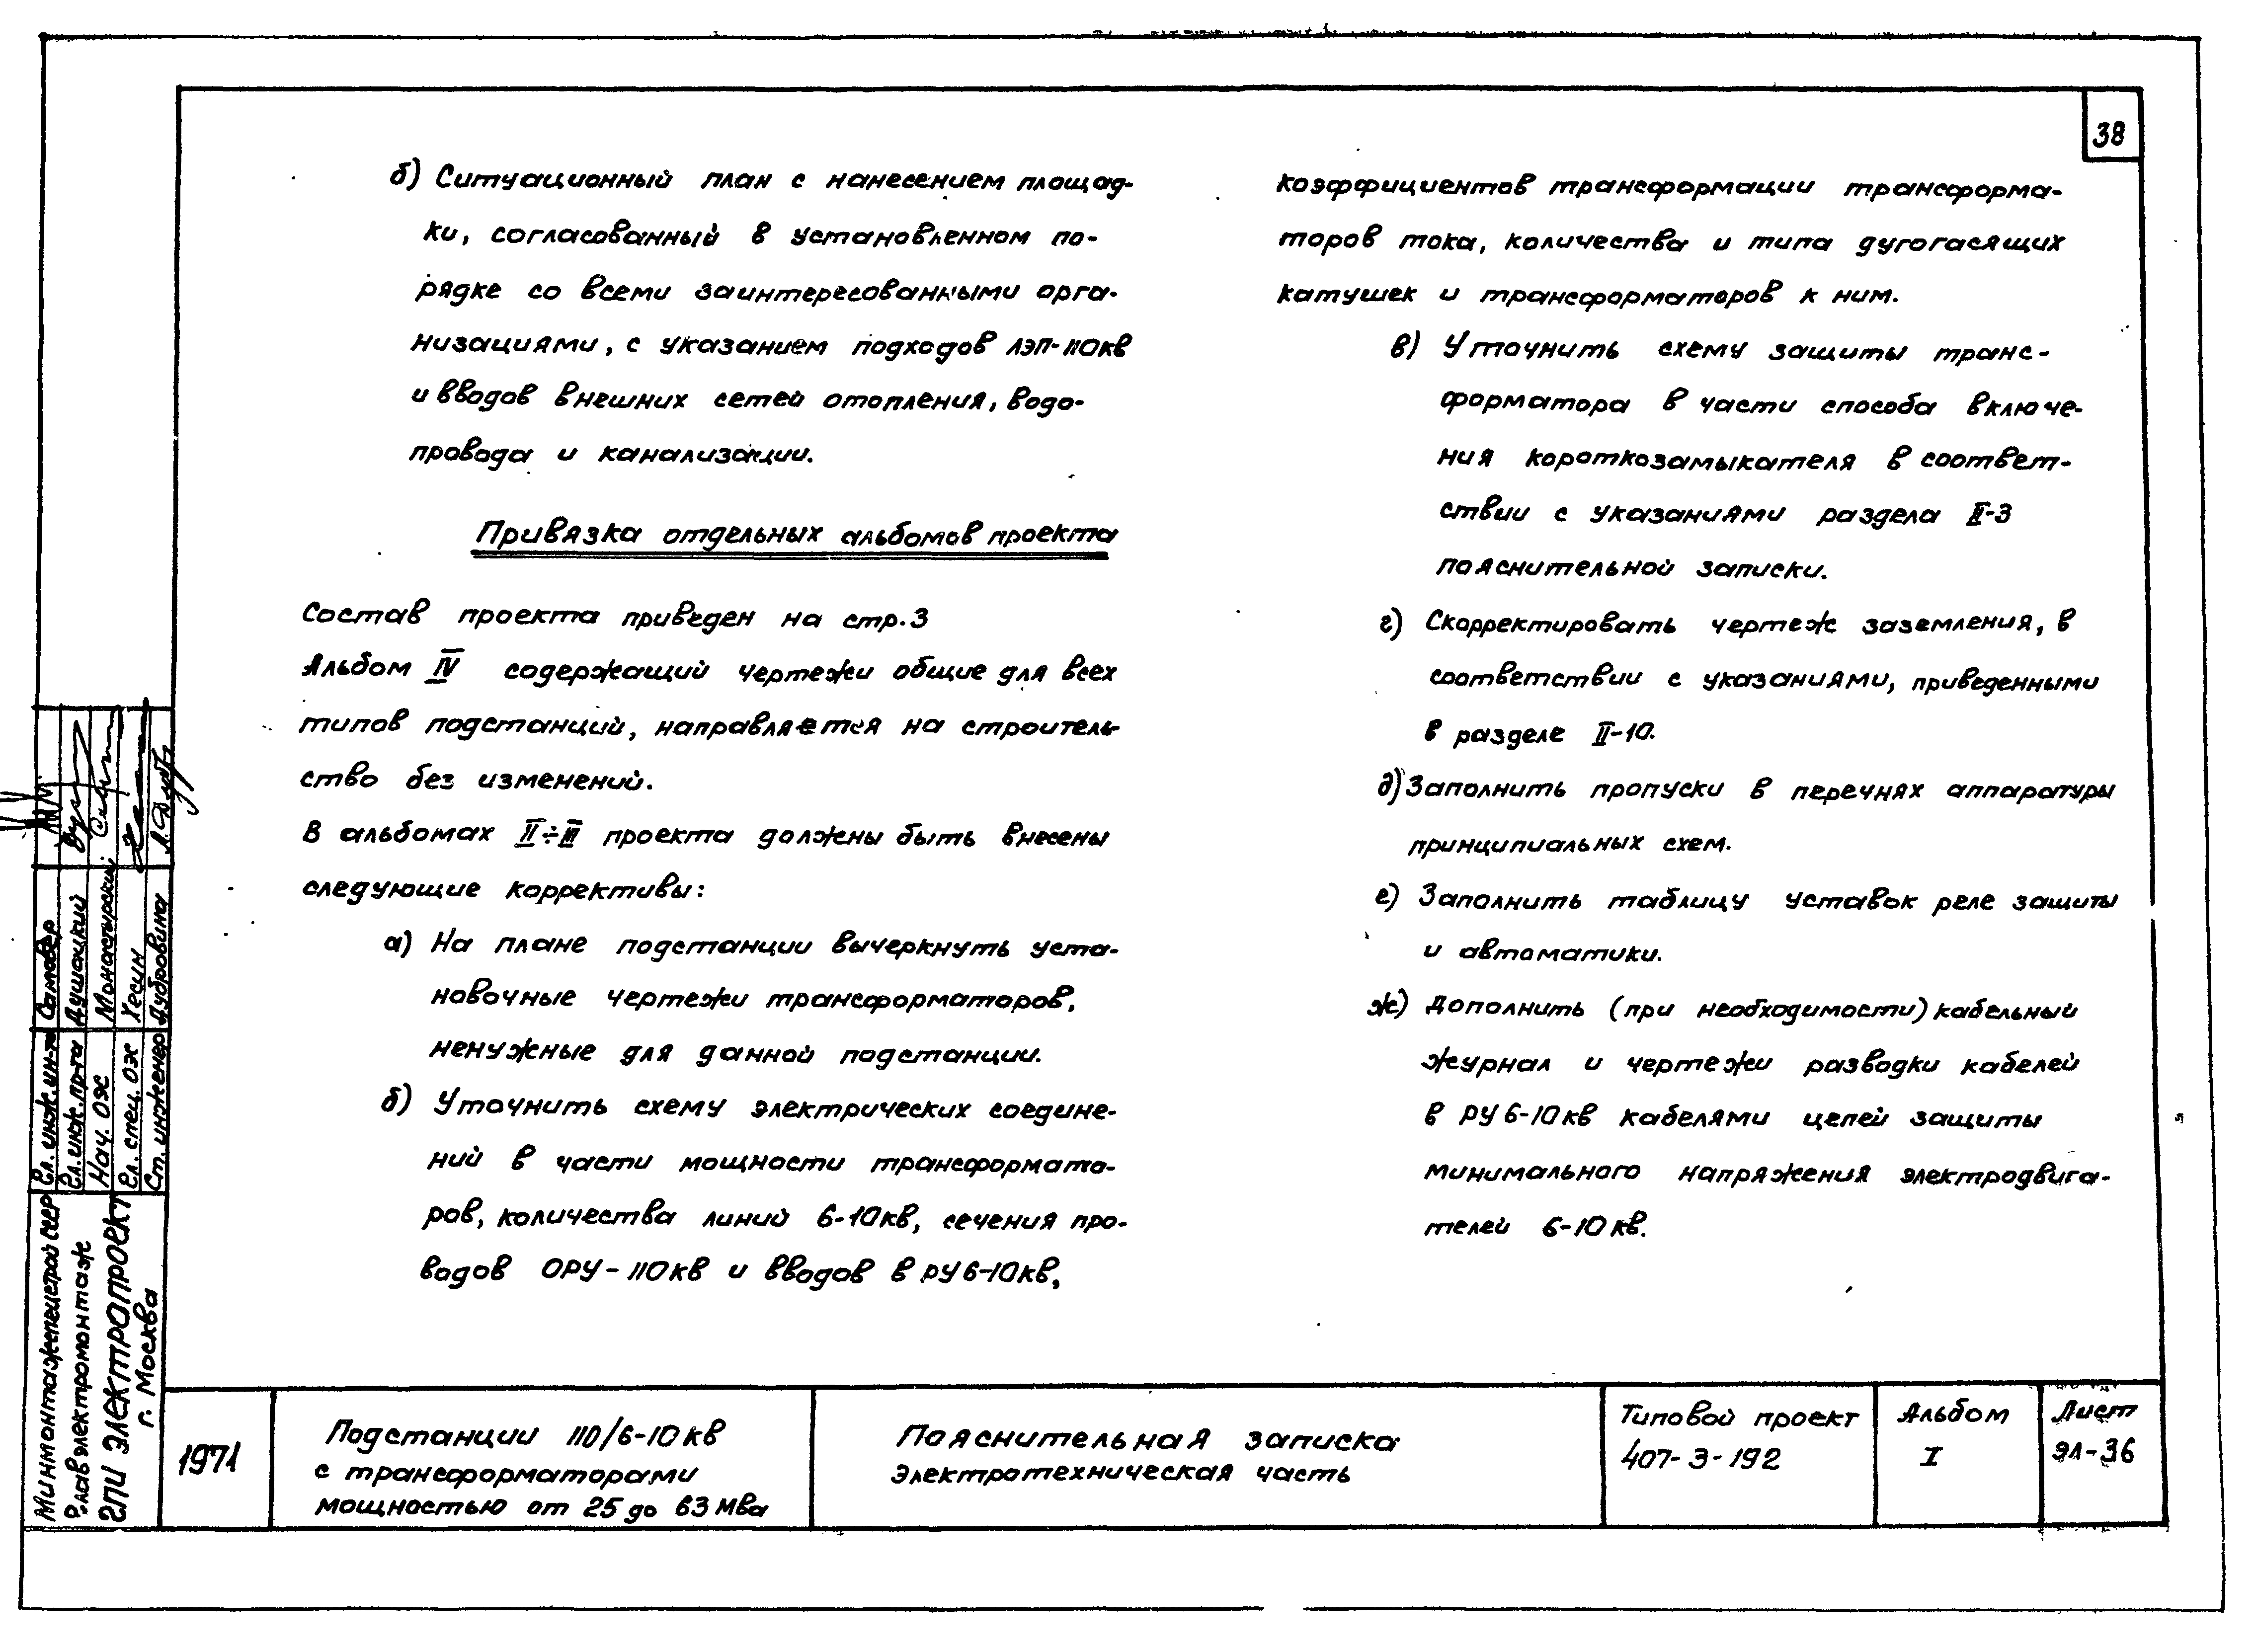 38
б) Ситуационный план с нанесением площад-
ки, согласованный в установленном по-
рядке со всеми заинтересованными орга-
низациями, с указанием подходов ЛЭП-110кв
и вводов внешних сетей отопления, водо-
провода и канализации.
Привязка отдельных альбомов проекта
Состав проекта приведен на стр.3
Альбом IV содержащий чертежи общие для всех
типов подстанций, направляется на строитель-
ство без изменений.
В альбомах II÷III проекта должны быть внесены
следующие коррективы:
а) На плане подстанции вычеркнуть уста-
новочные чертежи трансформаторов,
ненужные для данной подстанции.
б) Уточнить схему электрических соедине-
ний в части мощности трансформато-
ров, количества линий 6-10кв, сечения про-
водов ОРУ-110кв и вводов в РУ 6-10кв,
коэффициентов трансформации трансформа-
торов тока, количества и типа дугогасящих
катушек и трансформаторов к ним.
в) Уточнить схему защиты транс-
форматора в части способа включе-
ния короткозамыкателя в соответ-
ствии с указаниями раздела II-3
пояснительной записки.
г) Скорректировать чертеж заземления, в
соответствии с указаниями, приведенными
в разделе II-10.
д) Заполнить пропуски в перечнях аппаратуры
принципиальных схем.
е) Заполнить таблицу уставок реле защиты
и автоматики.
ж) Дополнить (при необходимости) кабельный
журнал и чертежи разводки кабелей
в РУ 6-10кв кабелями цепей защиты
минимального напряжения электродвига-
телей 6-10кв.
Гл. инж. ин-та Самовер
Гл. инж. пр-та
Нач. ОЭС Монастырский
Гл. спец. ОЭС Хесин
Ст. инженер Дубровина
Минмонтажспецстрой СССР
Главэлектромонтаж
ГПИ Электропроект
г. Москва
1971
Подстанции 110/6-10кв
с трансформаторами
мощностью от 25 до 63 Мва
Пояснительная записка
Электротехническая часть
Типовой проект
407-3-192
Альбом
I
Лист
ЭЛ-36